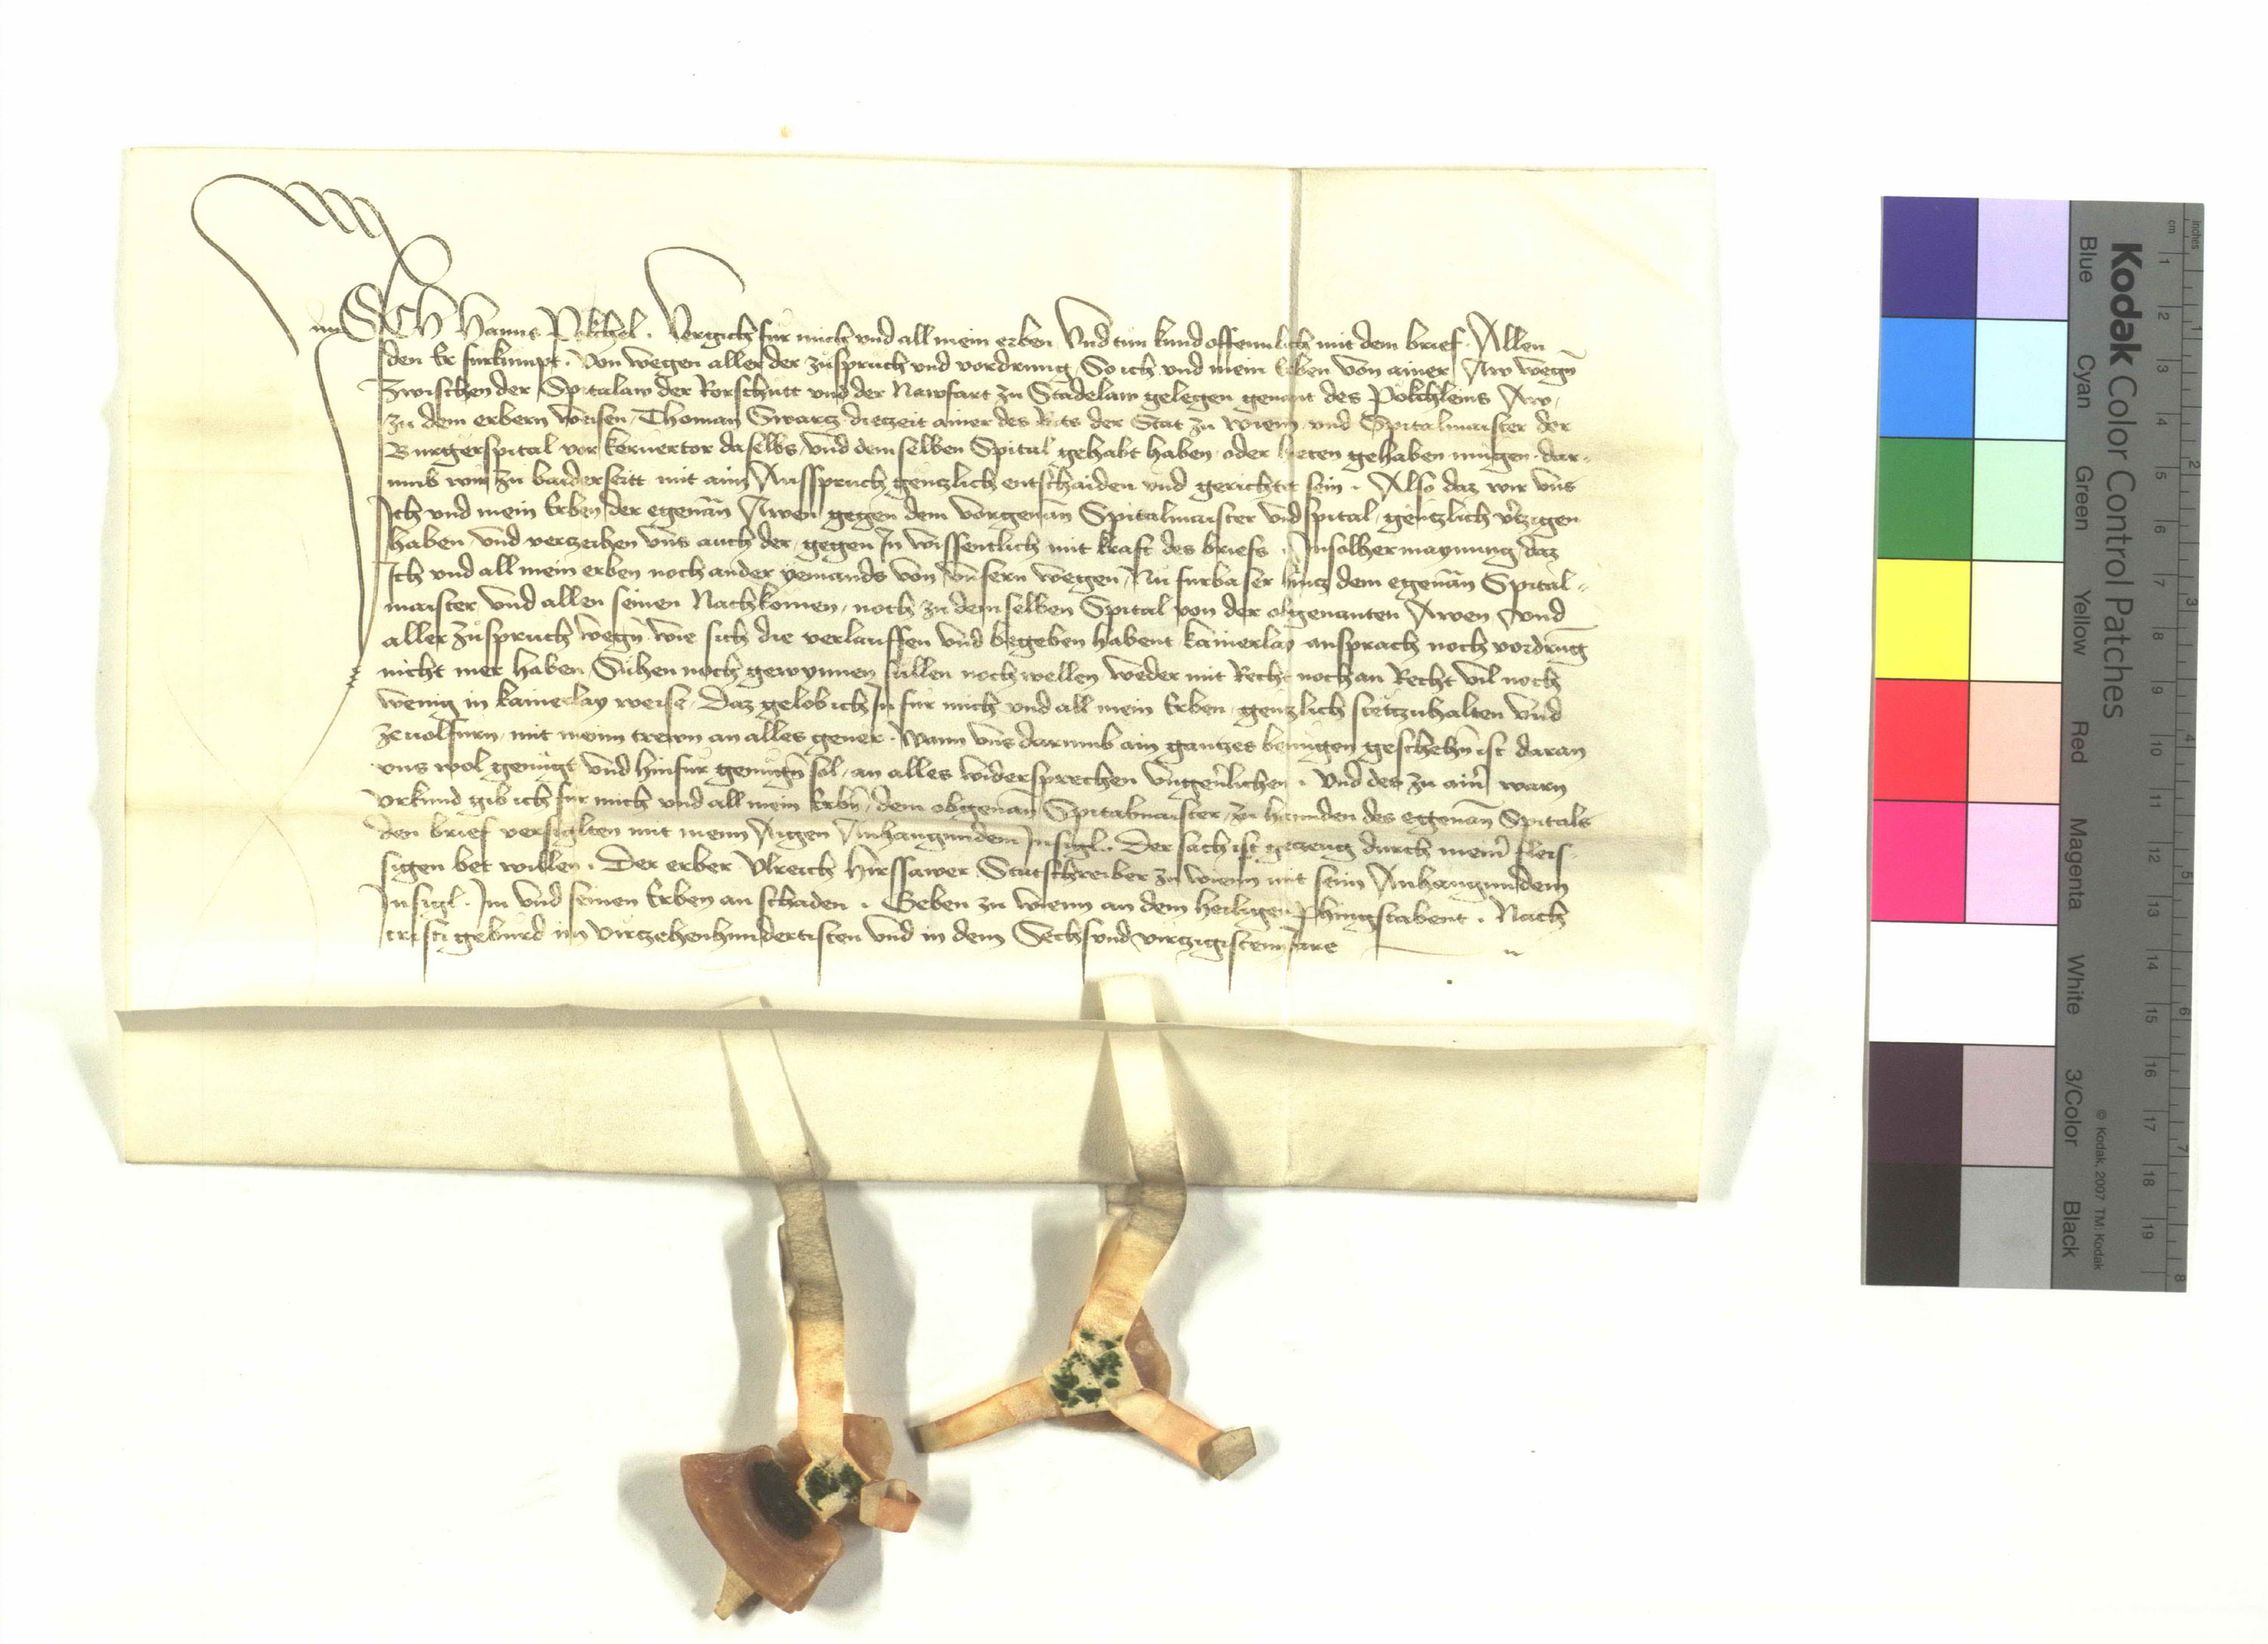 ICH Hanns Pökchel . Vergich für mich und all mein erben Und tun kund offennlich mit dem brief Allen
den Er furkumpt . Von wegen aller der züspruch und vordrung So ich und mein Erben von ainer Aw wegn
Zwischen der Spitalaw der Rorschütt und der Nawfart zu Stadelaw gelegen genant des Pökchleins Aw
zu dem erbern weisen Thoman Swarcz dietzeit ainer des Rats der Stat zu Wienn und Spitalmaister der
Burgerspital vor Kernertor daselbs und demselben Spital gehabt haben oder hieten gehaben mugen dar-
umb wir zu baiderseitt mit aim Ausspruch genczlich entschaiden und gerichtet sein . Also daz wir uns
Ich und mein Erben der egenan Awen gegen dem vorgenan Spitalmaister und spital genczlich vertzigen
haben und verczeihen uns auch der gegen In wissentlich mit kraft des briefs . In solher maynung daz
Ich und all mein erben noch ander yemands von unsern wegen Nu furbaser hincz dem egenan Spital-
maister und allen seinen Nachkomen noch zu demselben Spital von der obgenanten Awen und
aller züspruch wegn wie sich die verlauffen und begeben habent kainerlay ansprach noch vordrung
nicht mer haben Suhen noch gewynnen sullen noch wellen weder mit Recht noch an Recht vil noch
wenig in kainerlay weise Daz gelob ich In für mich und all mein Erben genczlich stett zuhalten und
zeuolfürn mit meinn trewn an alles geuer . Wann uns darumb ain gantzes benugen geschehn ist daran
uns wol genügt und hinfur genügn sol an alles widersprechen ungeuerlichen . Und des zu aim warn
urkund gib ich für mich und all mein Erbn dem obgenan Spitalmaister zu hannden des egenan Spitals
den brief versiglten mit meinn Aigen Anhangundem Insigl . Der sach ist gezeug durch meinr fleis-
sigen bet willen . Der erber Ulreich Hirssawer Statschreiber zu Wienn mit seim Anhangundem
Insigl . Im und seinen Erben an schaden . Geben zu Wienn an dem heiligen Phingstabent . Nach
cristi geburd im virczehenhundertisten und in dem Sechsundvirczigistenn Jare
Kodak Color Control Patches
Blue Cyan Green Yellow Red Magenta White 3/Color Black
© Kodak, 2007 TM: Kodak
inches 1 2 3 4 5 6 7 8
cm 1 2 3 4 5 6 7 8 9 10 11 12 13 14 15 16 17 18 19